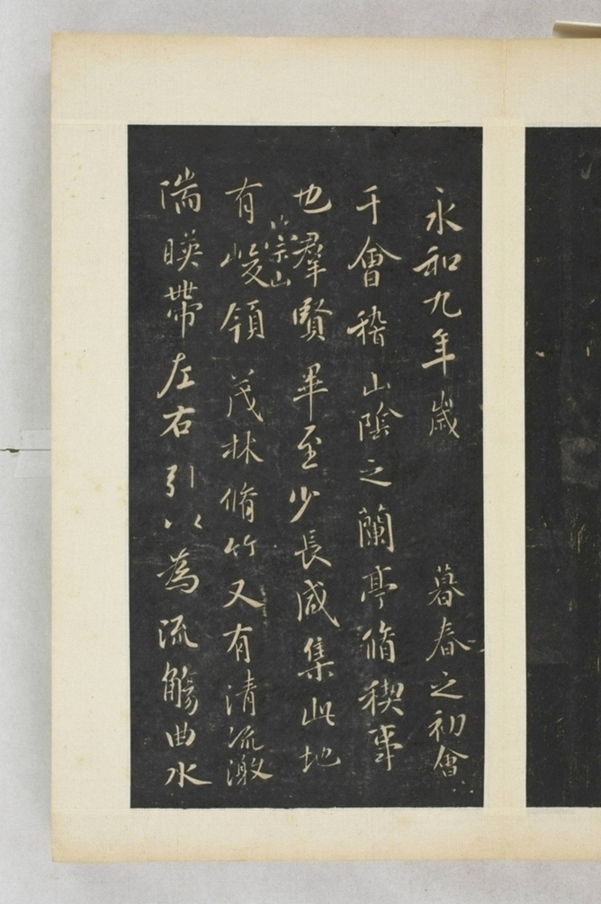 永和九年歲暮春之初會
于會稽山陰之蘭亭脩稧事
也羣賢畢至少長咸集此地
有崇山峻領茂林脩竹又有清流激
湍暎帶左右引以為流觴曲水